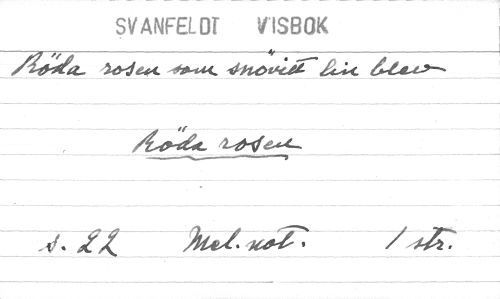 SVANFELDT VISBOK
Röda rosen som snövitt lin blev
Röda rosen
s. 22 Mel.not. 1 str.